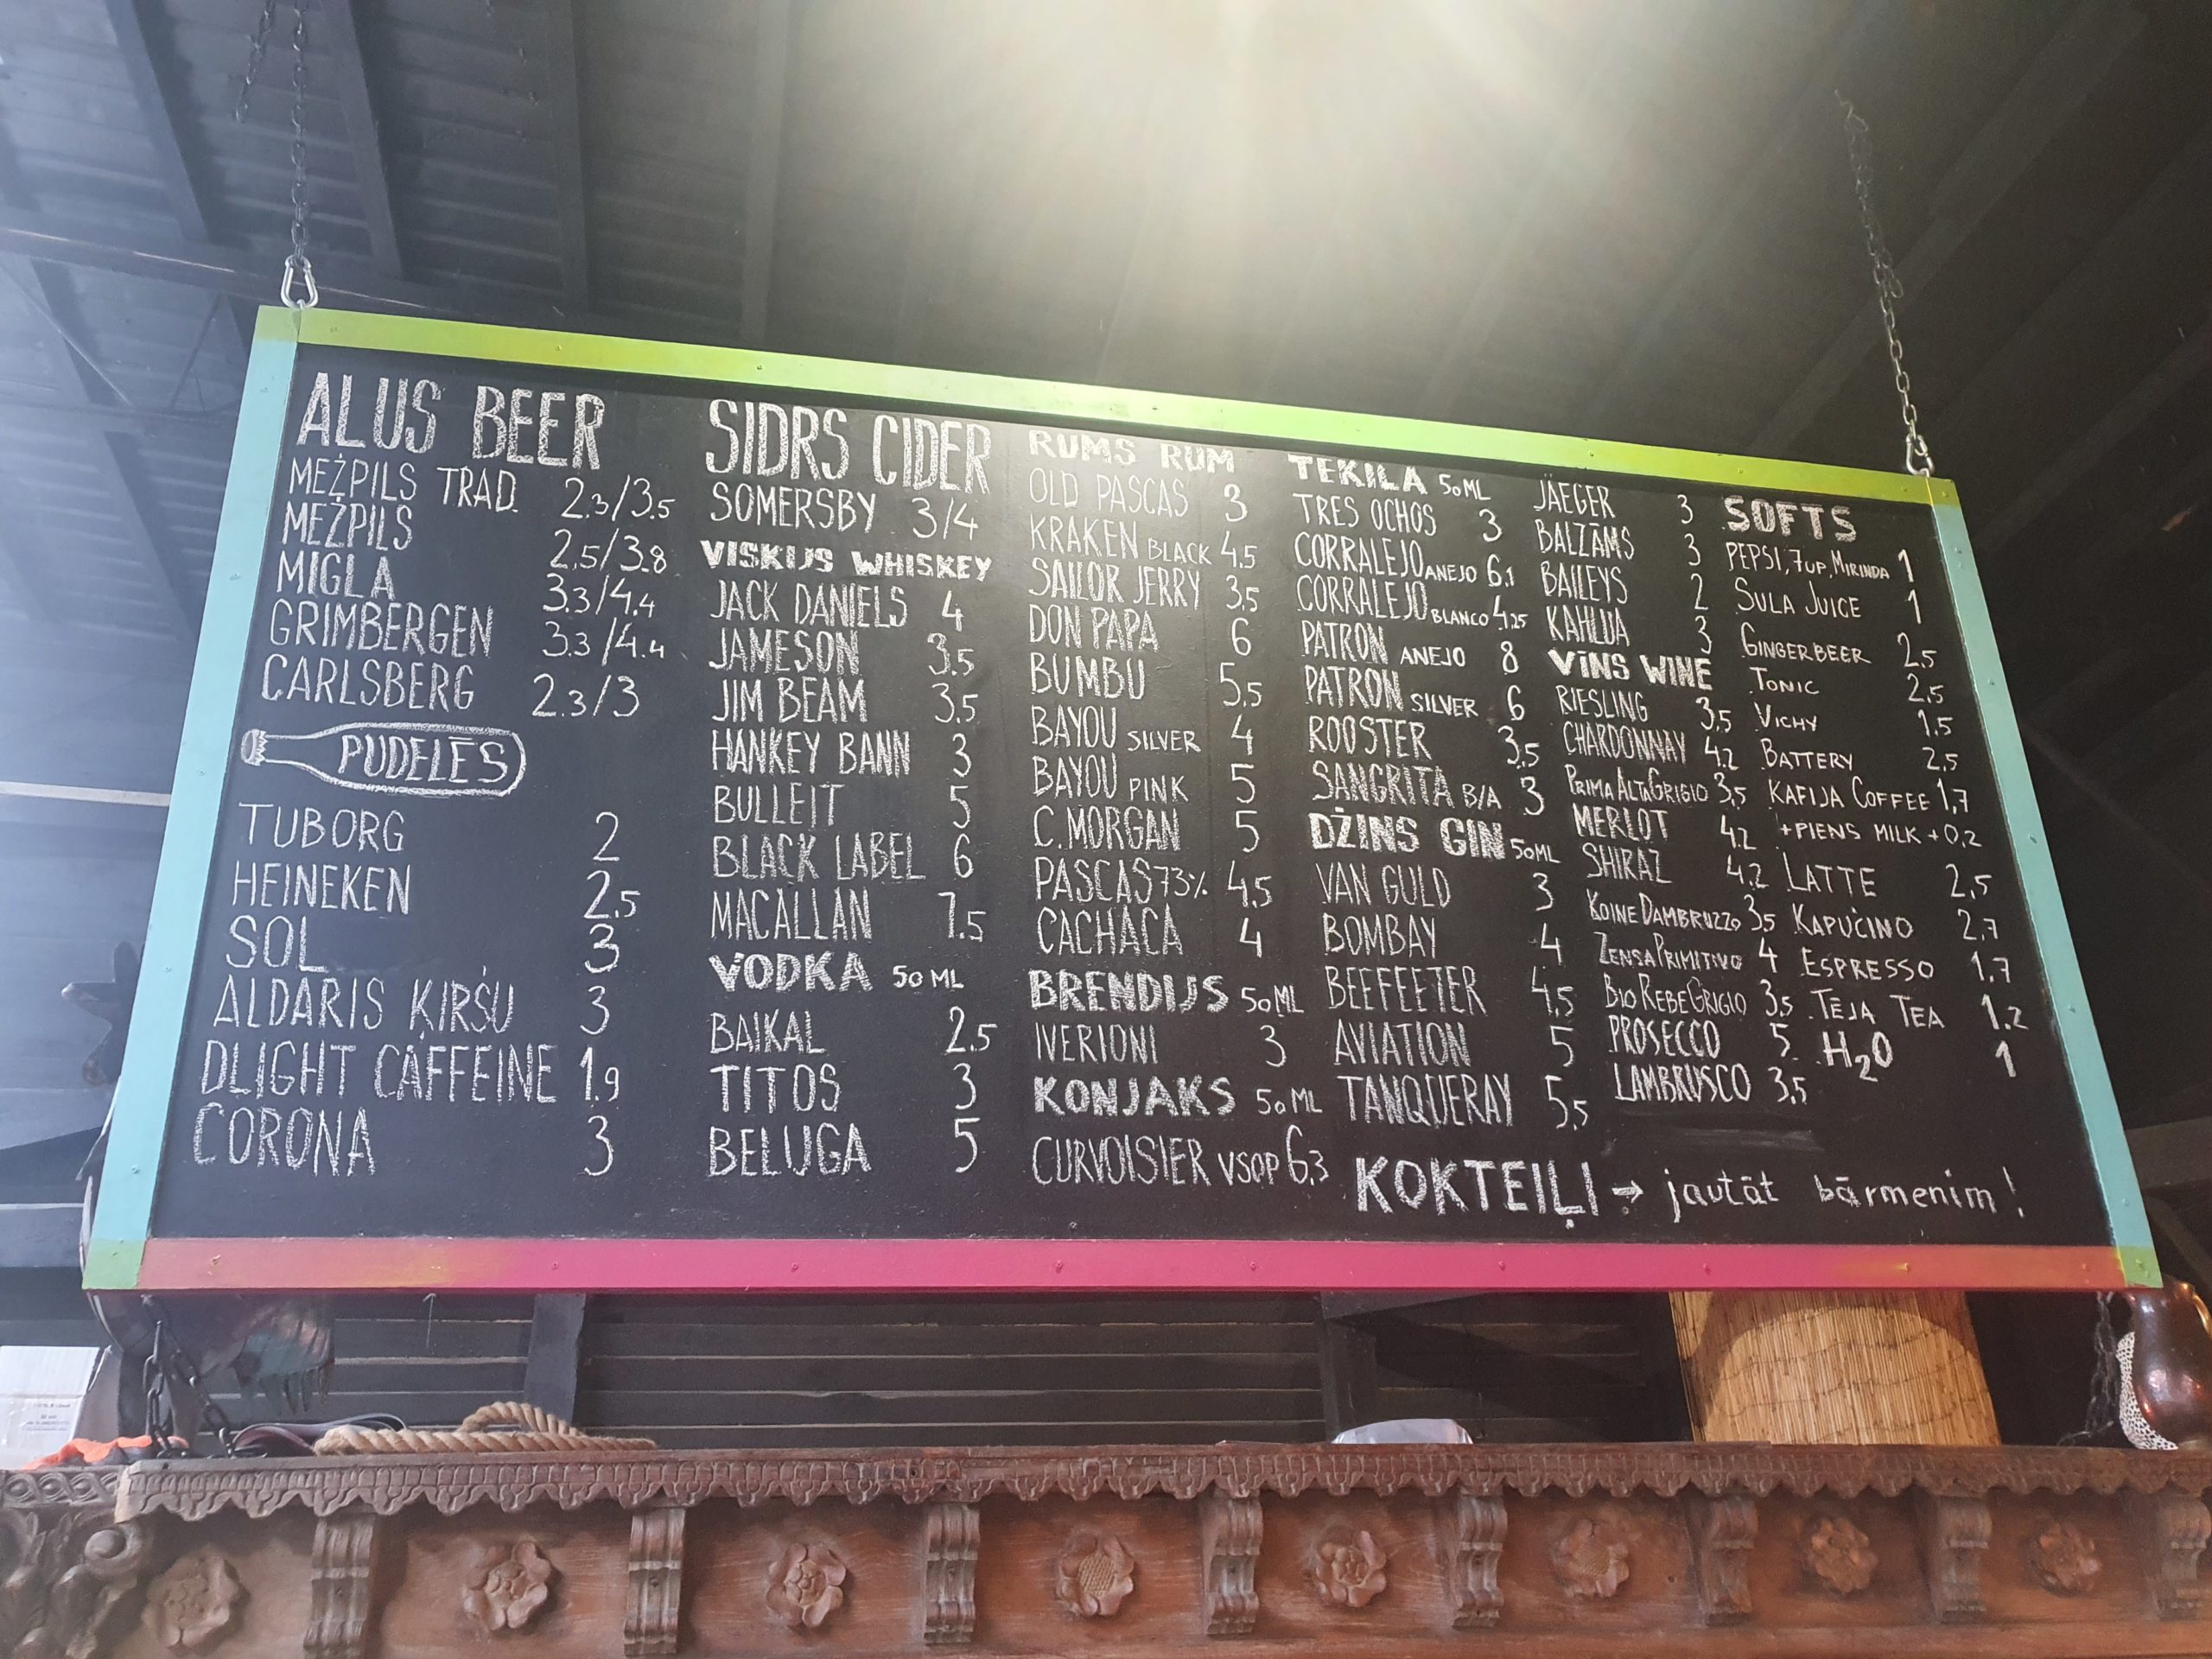 ALUS BEER
MEŽPILS TRAD. 2.3/3.5
MEŽPILS 2.5/3.8
MIGLA 3.3/4.4
GRIMBERGEN 3.3/4.4
CARLSBERG 2.3/3
PUDELĒS
TUBORG 2
HEINEKEN 2.5
SOL 3
ALDARIS ĶIRŠU 3
DLIGHT CAFFEINE 1.9
CORONA 3
SIDRS CIDER
SOMERSBY 3/4
VISKIJS WHISKEY
JACK DANIELS 4
JAMESON 3.5
JIM BEAM 3.5
HANKEY BANN 3
BULLEIT 5
BLACK LABEL 6
MACALLAN 7.5
VODKA 50 ML
BAIKAL 2.5
TITOS 3
BELUGA 5
RUMS RUM
OLD PASCAS 3
KRAKEN BLACK 4.5
SAILOR JERRY 3.5
DON PAPA 6
BUMBU 5.5
BAYOU SILVER 4
BAYOU PINK 5
C.MORGAN 5
PASCAS 73% 4.5
CACHACA 4
BRENDIJS 50 ML
IVERIONI 3
KONJAKS 50 ML
CURVOISIER VSOP 6.3
TEKILA 50 ML
TRES OCHOS 3
CORRALEJO ANEJO 6.1
CORRALEJO BLANCO 4.25
PATRON ANEJO 8
PATRON SILVER 6
ROOSTER 3.5
SANGRITA B/A 3
DŽINS GIN 50 ML
VAN GULD 3
BOMBAY 4
BEEFEETER 4.5
AVIATION 5
TANQUERAY 5.5
JÄEGER 3
BALZĀMS 3
BAILEYS 2
KAHLUA 3
VĪNS WINE
RIESLING 3.5
CHARDONNAY 4.2
PRIMA ALTA GRIGIO 3.5
MERLOT 4.2
SHIRAZ 4.2
KOINE DAMBRUZZO 3.5
ZENSA PRIMITIVO 4
BIO REBE GRIGIO 3.5
PROSECCO 5
LAMBRUSCO 3.5
SOFTS
PEPSI, 7UP, MIRINDA 1
SULA JUICE 1
GINGERBEER 2.5
TONIC 2.5
VICHY 1.5
BATTERY 2.5
KAFIJA COFFEE 1,7
+PIENS MILK +0,2
LATTE 2,5
KAPUČINO 2,7
ESPRESSO 1,7
TĒJA TEA 1.2
H2O 1
KOKTEIĻI → jautāt bārmenim!